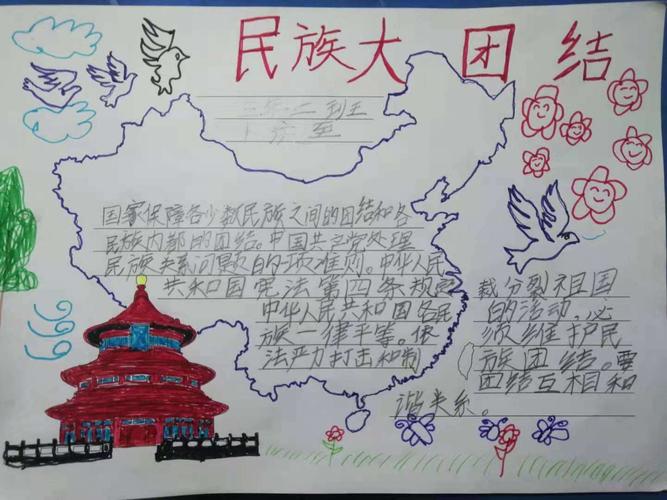 民族大团结
三年二班
国家保障各少数民族之间的团结和各
民族内部的团结。中国共产党处理
民族关系问题的项准则。中华人民
共和国宪法第四条规定
中华人民共和国各民
族一律平等。依
法严力打击和制
裁分裂祖国
的活动,必
须维护民
族团结。要
团结互相和
谐关系。